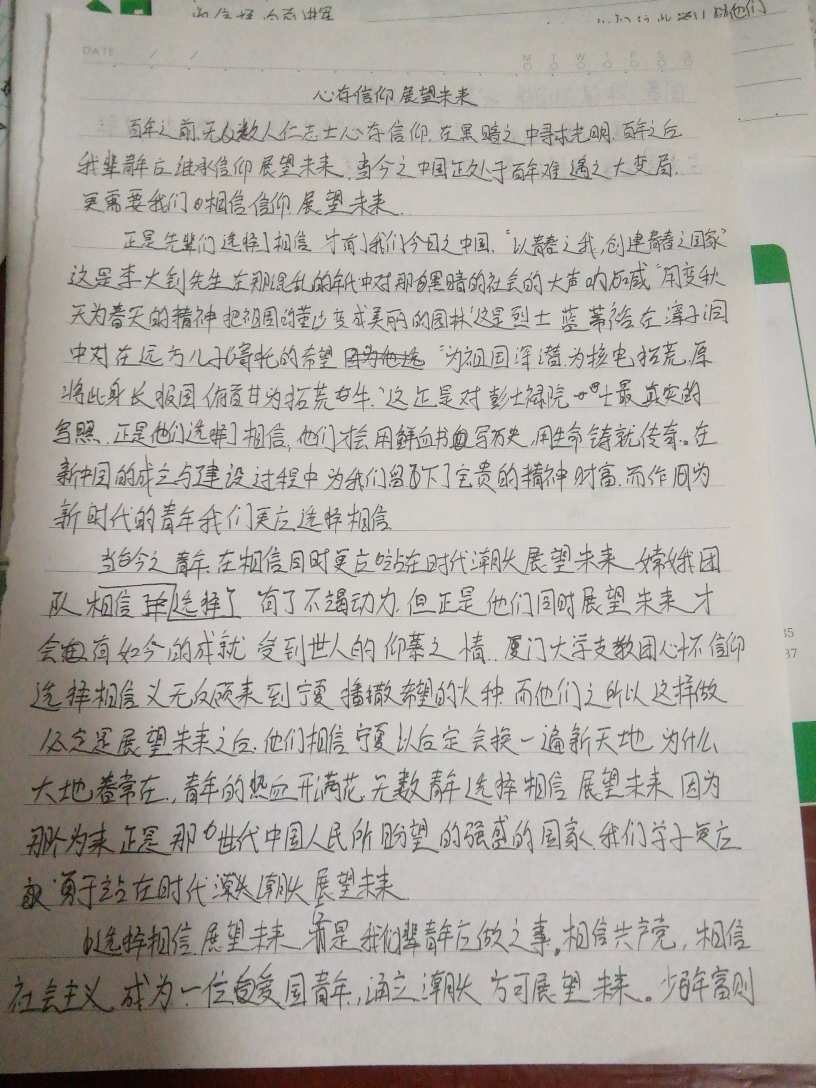 DATE / /
M T W T F S S
心存信仰 展望未来
百年之前,无数人仁志士心存信仰,在黑暗之中寻求光明,百年之后
我辈青年应继承信仰展望未来,当今之中国正处于百年难遇之大变局,
更需要我们相信信仰 展望未来.
正是先辈们选择了相信 才有了我们今日之中国,"以青春之我,创建青春之国家"
这是李大钊先生在那混乱的年代中对那黑暗的社会的大声呐喊"用变秋
天为春天的精神 把祖国的荒山变成美丽的园林"这是烈士 蓝蒂裕在渣滓洞
中对在远方儿子寄托的希望 "为祖国深潜,为核电拓荒,愿
将此身长报国 俯首甘为拓荒牛."这正是对彭士禄院士最真实的
写照.正是他们选择了相信,他们才会用鲜血书写历史,用生命铸就传奇。在
新中国的成立与建设过程中 为我们留下了宝贵的精神财富.而作同为
新时代的青年我们更应选择相信
当今之青年,在相信同时更应站在时代潮头展望未来 嫦娥团
队 相信 选择了 有了不竭动力.但正是他们同时展望未来才
会有如今的成就 受到世人的仰慕之情..厦门大学支教团心怀信仰
选择相信义无反顾来到宁夏 播撒希望的火种.而他们之所以这样做
必定是展望未来之后.他们相信宁夏以后定会换一遍新天地 为什么
大地春常在,青年的热血开满花 无数青年选择相信 展望未来 因为
那个为来 正是那个世代中国人民所盼望的强盛的国家.我们学子更应
勇于站在时代潮头 展望未来
选择相信 展望未来 是我们辈青年应做之事。相信共产党,相信
社会主义 成为一位爱国青年,涌立潮头 方可展望未来。少年富则
35
37